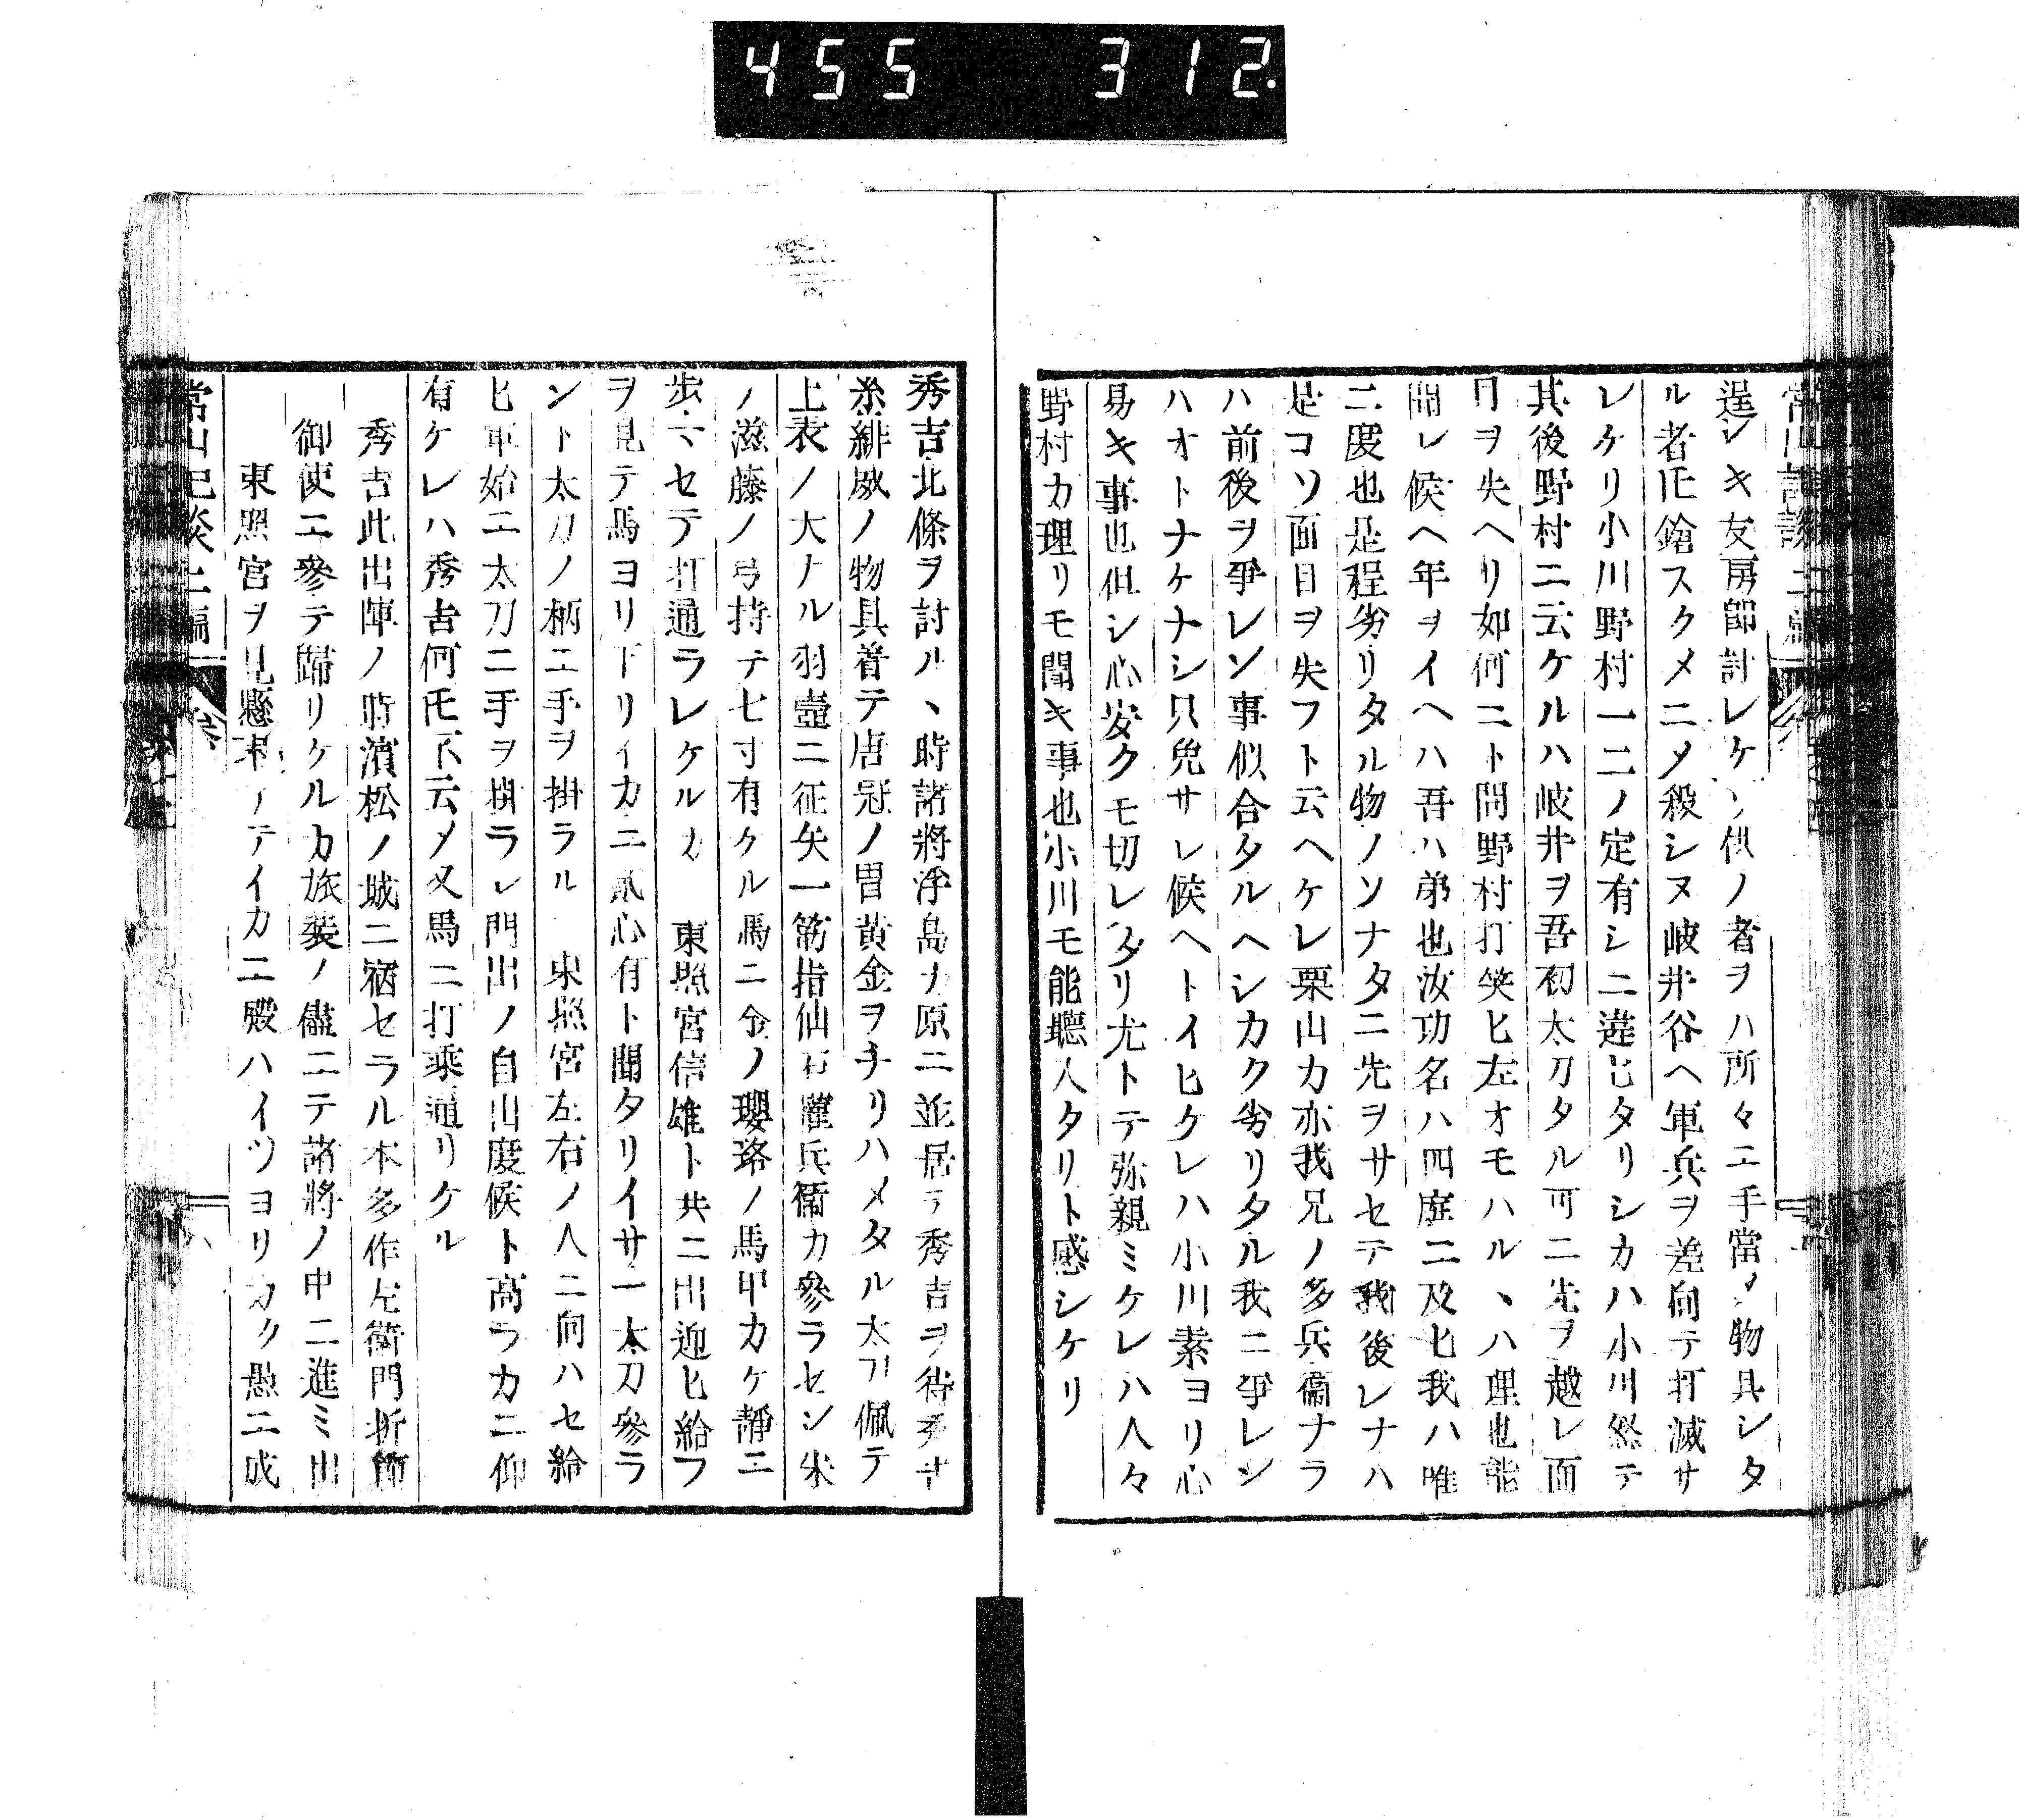 455 312.
逞シキ友房即討レケリ供ノ者ヲハ所々エ手當ノ物具シタ
ル者𪜈鎗スクメニメ殺シヌ岐井谷ヘ軍兵ヲ差向テ打滅サ
レケリ小川野村一二ノ定有シニ違ヒタリシカハ小川怒テ
其後野村ニ云ケルハ岐井ヲ吾初太刀タル可ニ先ヲ越レ面
目ヲ失ヘリ如何ニト問野村打笑ヒ左オモハルヽハ理也能
聞レ候ヘ年ヲイヘハ吾ハ弟也汝功名ハ四度ニ及ヒ我ハ唯
二度也是程劣リタル物ノソナタニ先ヲサセテ我後レナハ
是コソ面目ヲ失フト云ヘケレ栗山カ亦我兄ノ多兵衞ナラ
ハ前後ヲ爭レン事似合タルヘシカク劣リタル我ニ爭レン
ハオトナケナシ只免サレ候ヘトイヒクレハ小川素ヨリ心
易キ事也但シ心安クモ切レタリ尤トテ弥親ミケレハ人々
野村カ理リモ聞キ事也小川モ能聽人タリト感シケリ
秀吉北條ヲ討ルヽ時諸將浮島カ原ニ並居テ秀吉ヲ待奉ル
糸緋威ノ物具着テ唐冠ノ冑黄金ヲチリハメタル太刀佩テ
上表ノ大ナル羽壺ニ征矢一筋指仙石權兵衞カ參ラセシ朱
ノ滋藤ノ弓持テ七寸有クル馬ニ金ノ瓔珞ノ馬甲カケ靜ニ
歩マセテ打通ラレケルカ 東照宮信雄ト共ニ出迎ヒ給フ
ヲ見テ馬ヨリ下リイカニ貳心有ト聞タリイサ一太刀參ラ
ント太刀ノ柄ニ手ヲ掛ラル 東照宮左右ノ人ニ向ハセ給
ヒ軍始ニ太刀ニ手ヲ掛ラレ門出ノ自出度候ト高ラカニ仰
有ケレハ秀吉何𪜈不云メ又馬ニ打乘通リケル
秀吉此出陣ノ時濱松ノ城ニ宿セラル本多作左衞門折節
御使ニ參テ歸リケルカ旅裝ノ儘ニテ諸將ノ中ニ進ミ出
東照宮ヲ見懸奉リテイカニ殿ハイツヨリカク愚ニ成
常山紀談二編